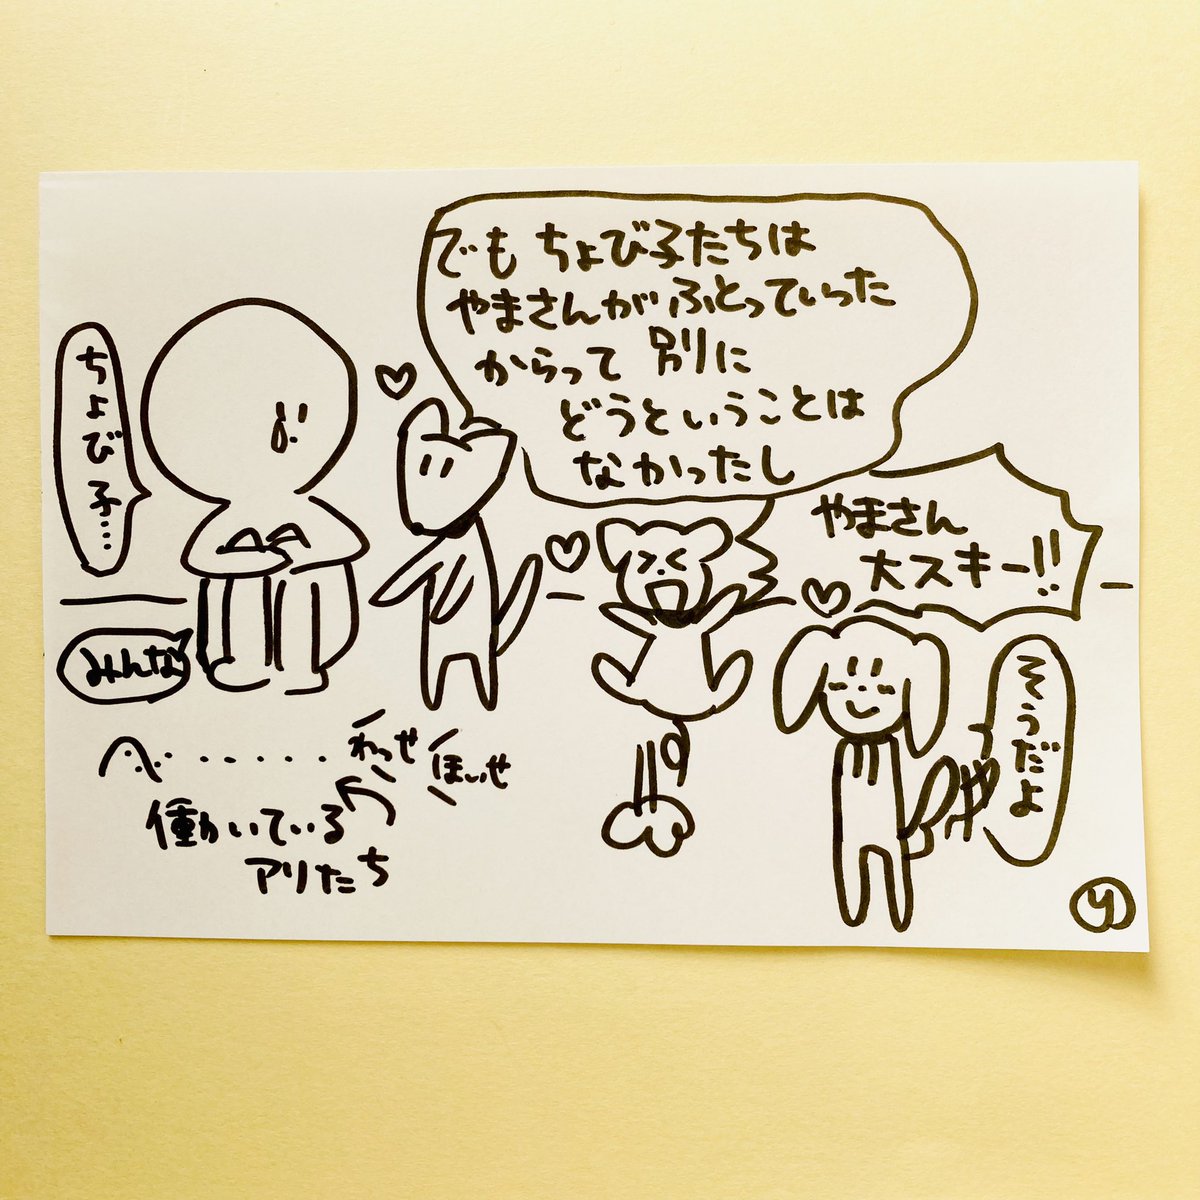 でも ちょび子たちは
やまさんが ふとっていった
からって 別に
どうということは
なかったし
やまさん
大スキー!!
そうだよ
ちょび子…
みんな
わっせ
ほいせ
働いている
アリたち